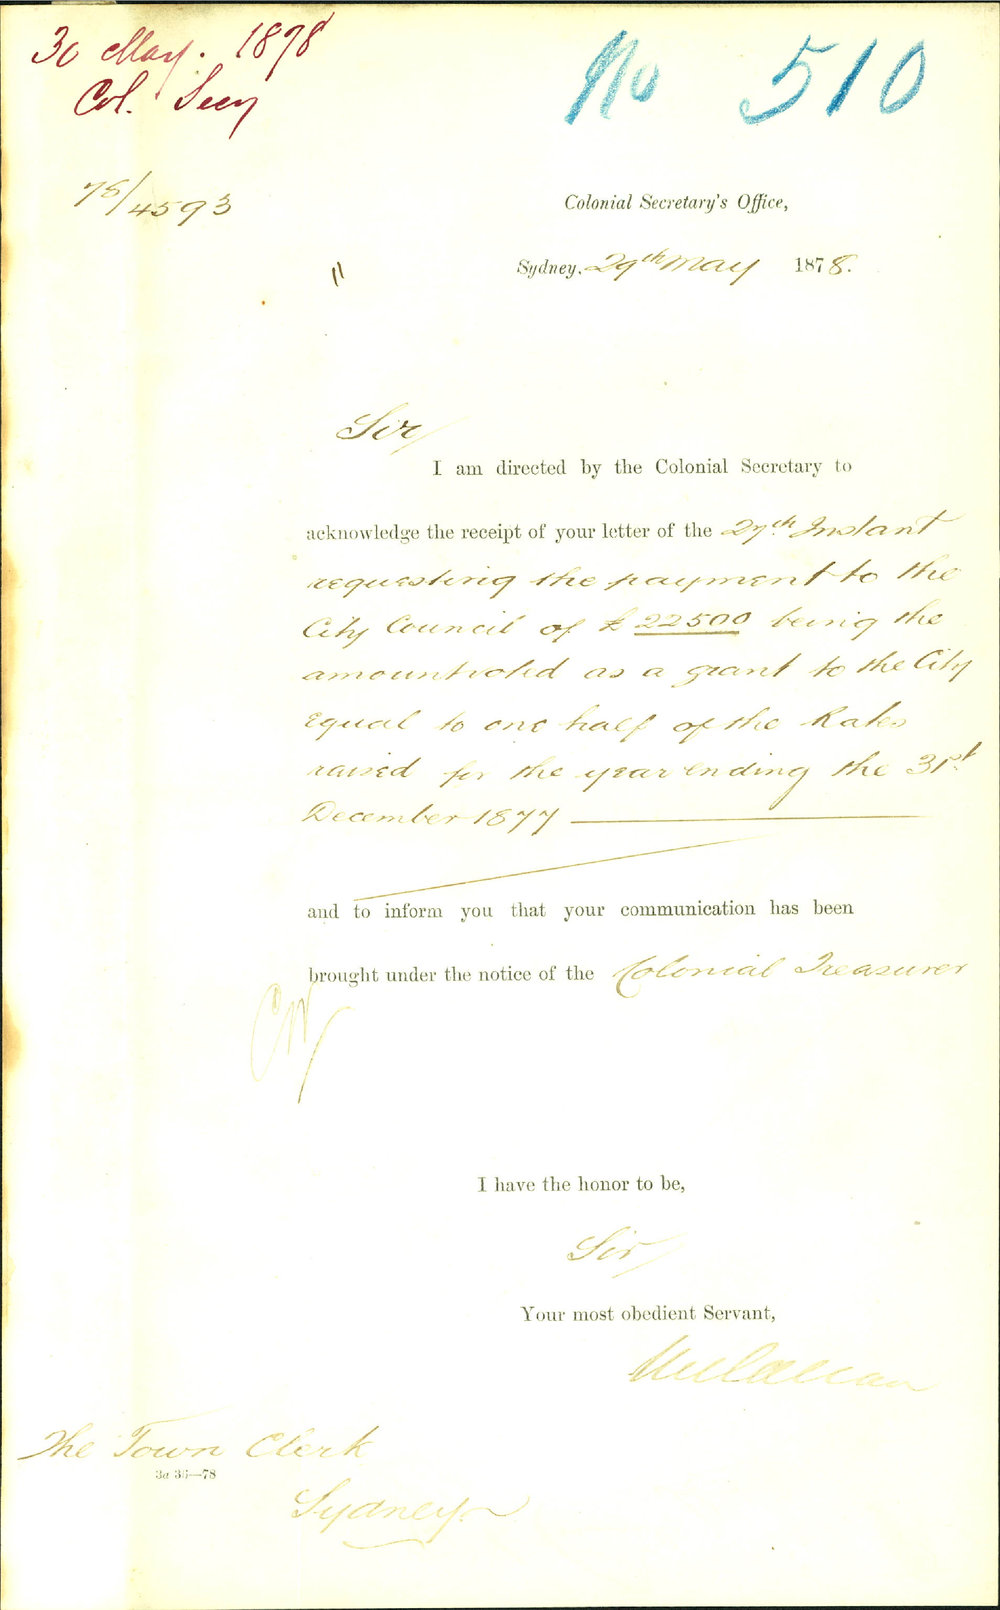 30 May. 1878
Col. Secy
No 510
78/4593
Colonial Secretary's Office,
Sydney, 29th May 1878.
Sir/
I am directed by the Colonial Secretary to
acknowledge the receipt of your letter of the 27th Instant
requesting the payment to the
City Council of £22500 being the
amount voted as a grant to the City
equal to one half of the Rates
raised for the year ending the 31st
December 1877
and to inform you that your communication has been
brought under the notice of the Colonial Treasurer
I have the honor to be,
Sir/
Your most obedient Servant,
The Town Clerk
3a 35—78
Sydney